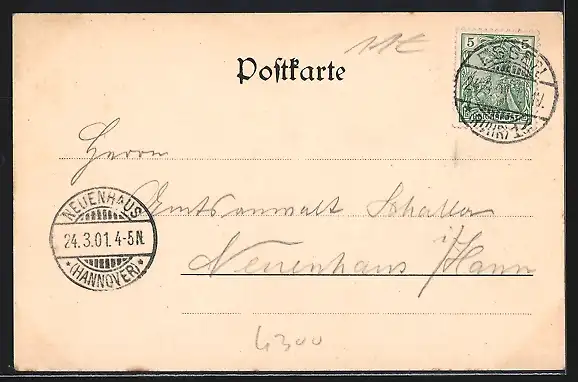 11€
Postkarte
5 5
ESSEN
(RUHR) 1
Herrn
Amtsanwalt Schaller
Neuenhaus i/Hann
NEUENHAUS
24.3.01.4-5N.
* (HANNOVER) *
4300